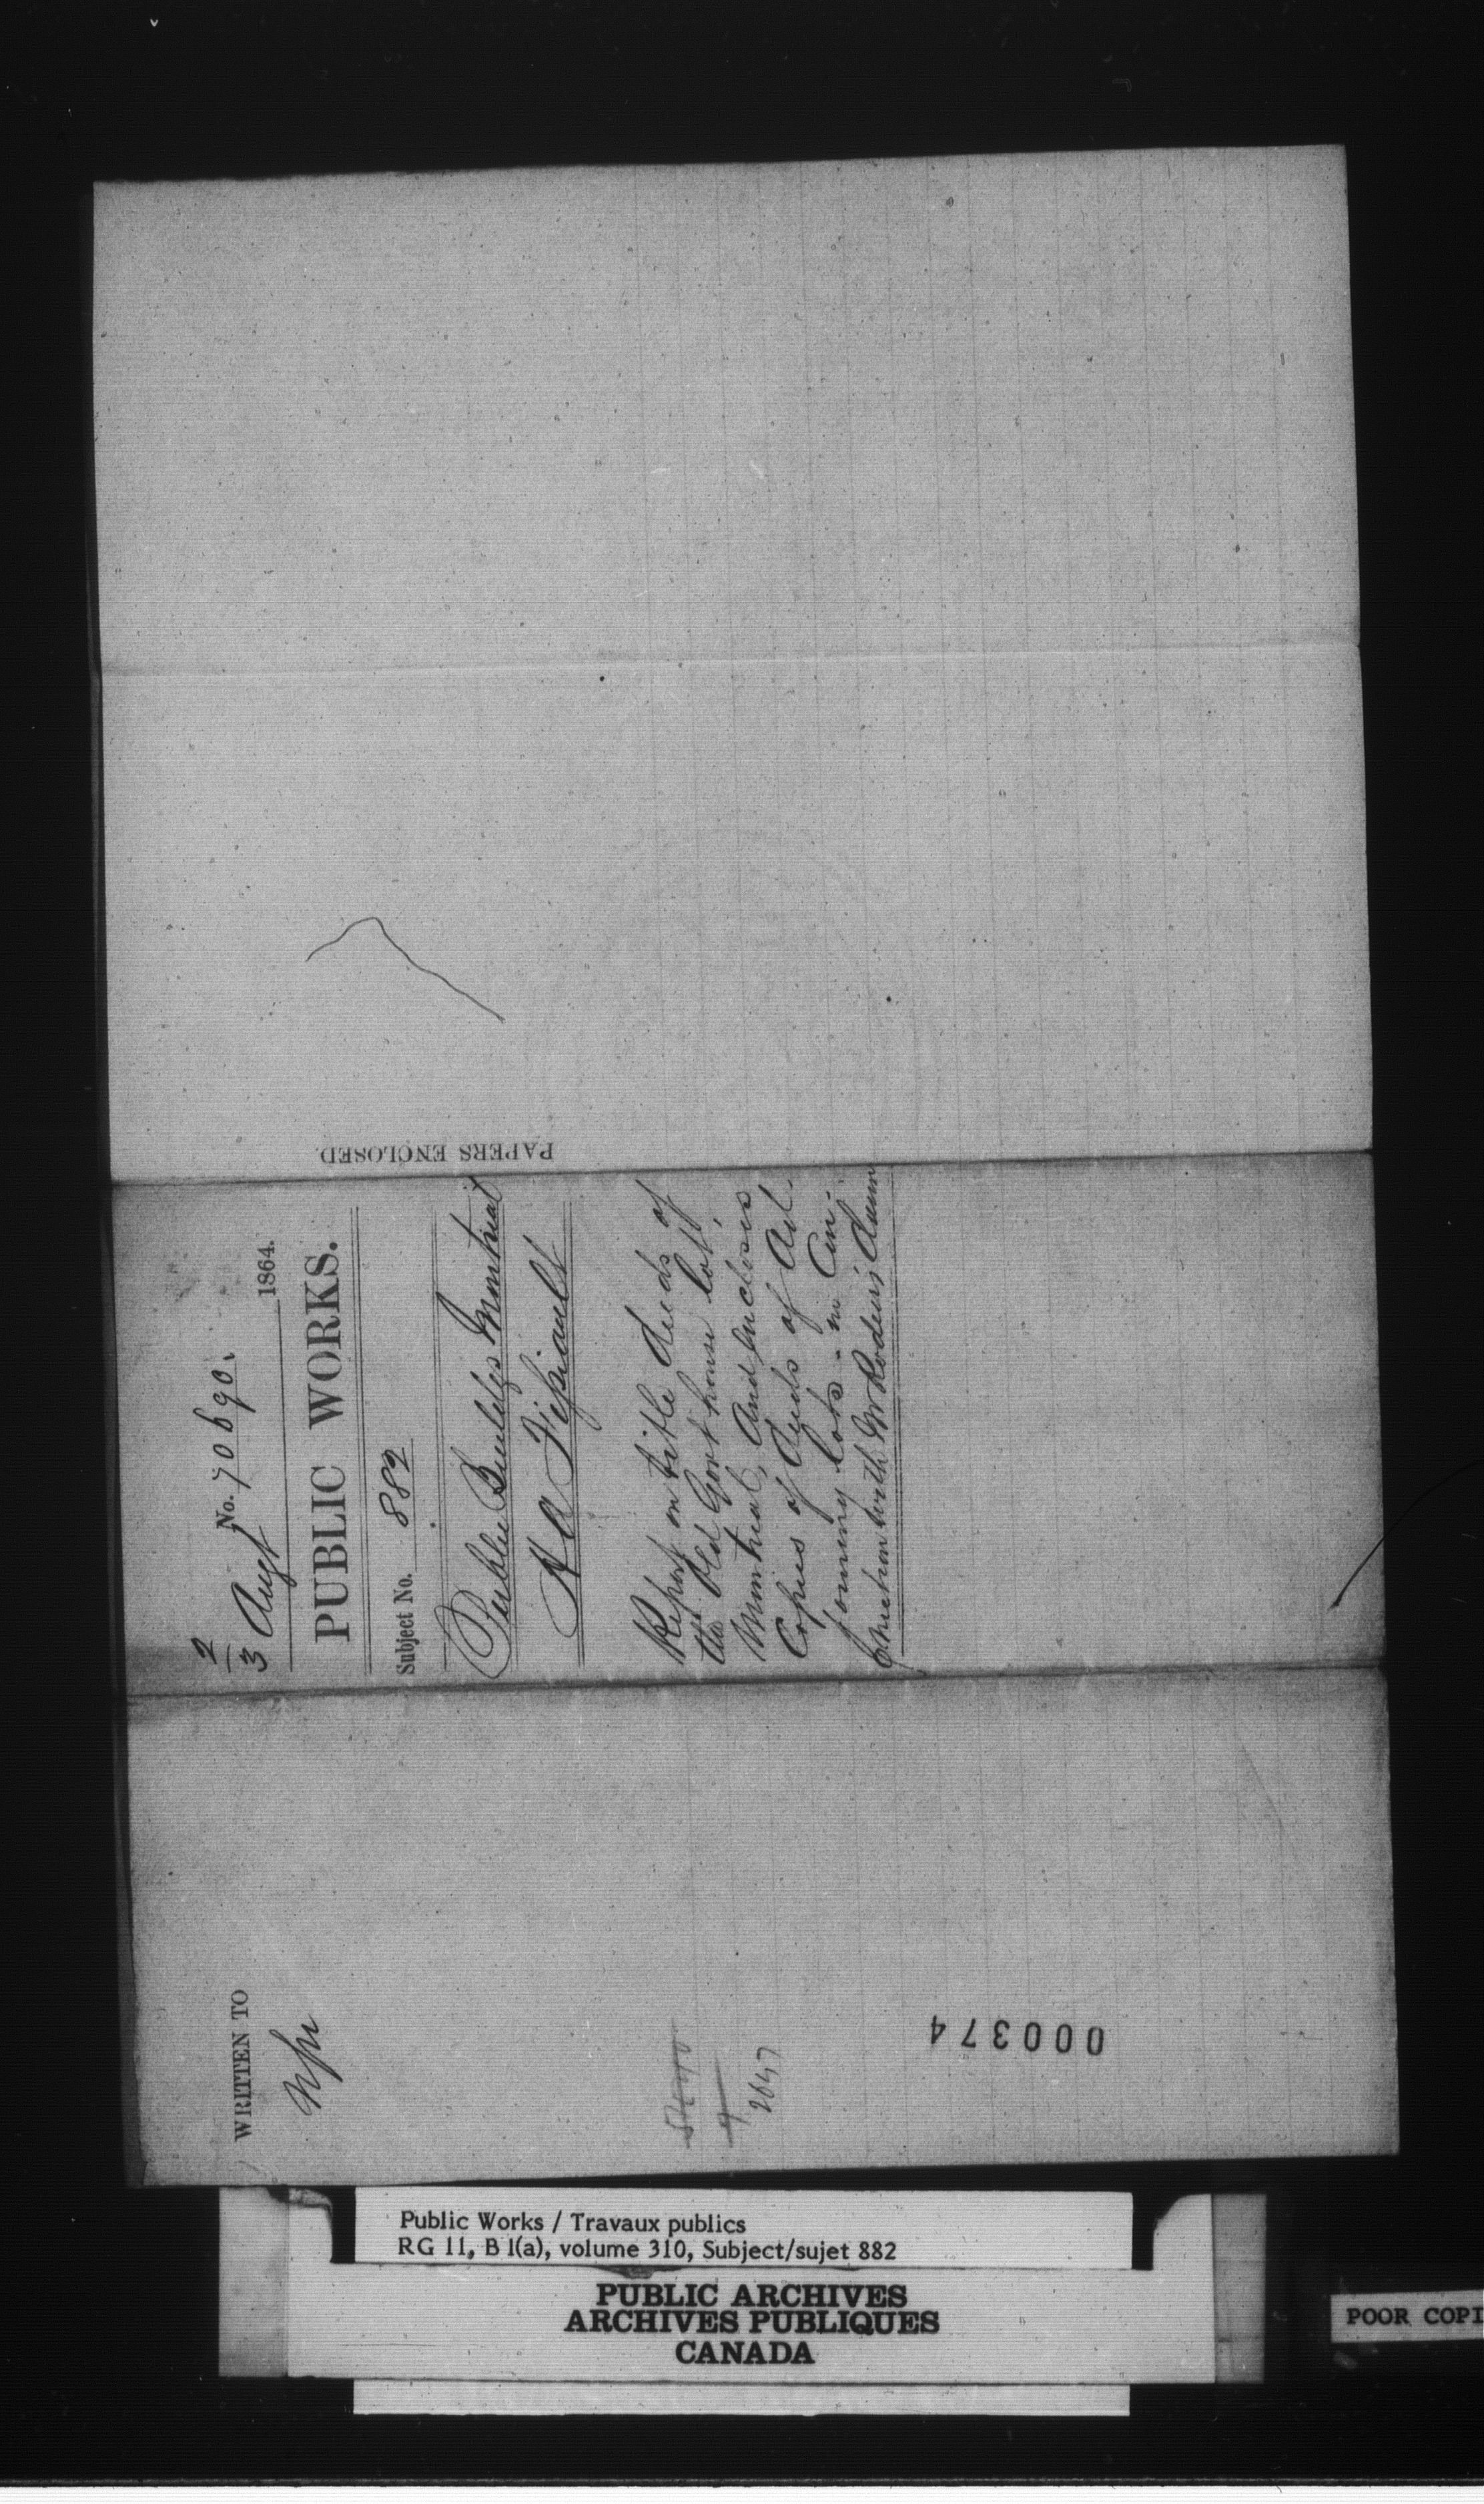 PAPERS ENCLOSED.
No. 70690.
2/3 Augt 1864.
PUBLIC WORKS.
Subject No. 882
Public Buildgs Montreal
Report on title deeds of
the Old Govt house lot,
Montreal, and incloses
Copies of deeds of Ad-
joining lots - in Con-
junction with Mr Roden's
WRITTEN TO
2647
000374
Public Works / Travaux publics
RG 11, B 1(a), volume 310, Subject/sujet 882
PUBLIC ARCHIVES
ARCHIVES PUBLIQUES
CANADA
POOR COPI